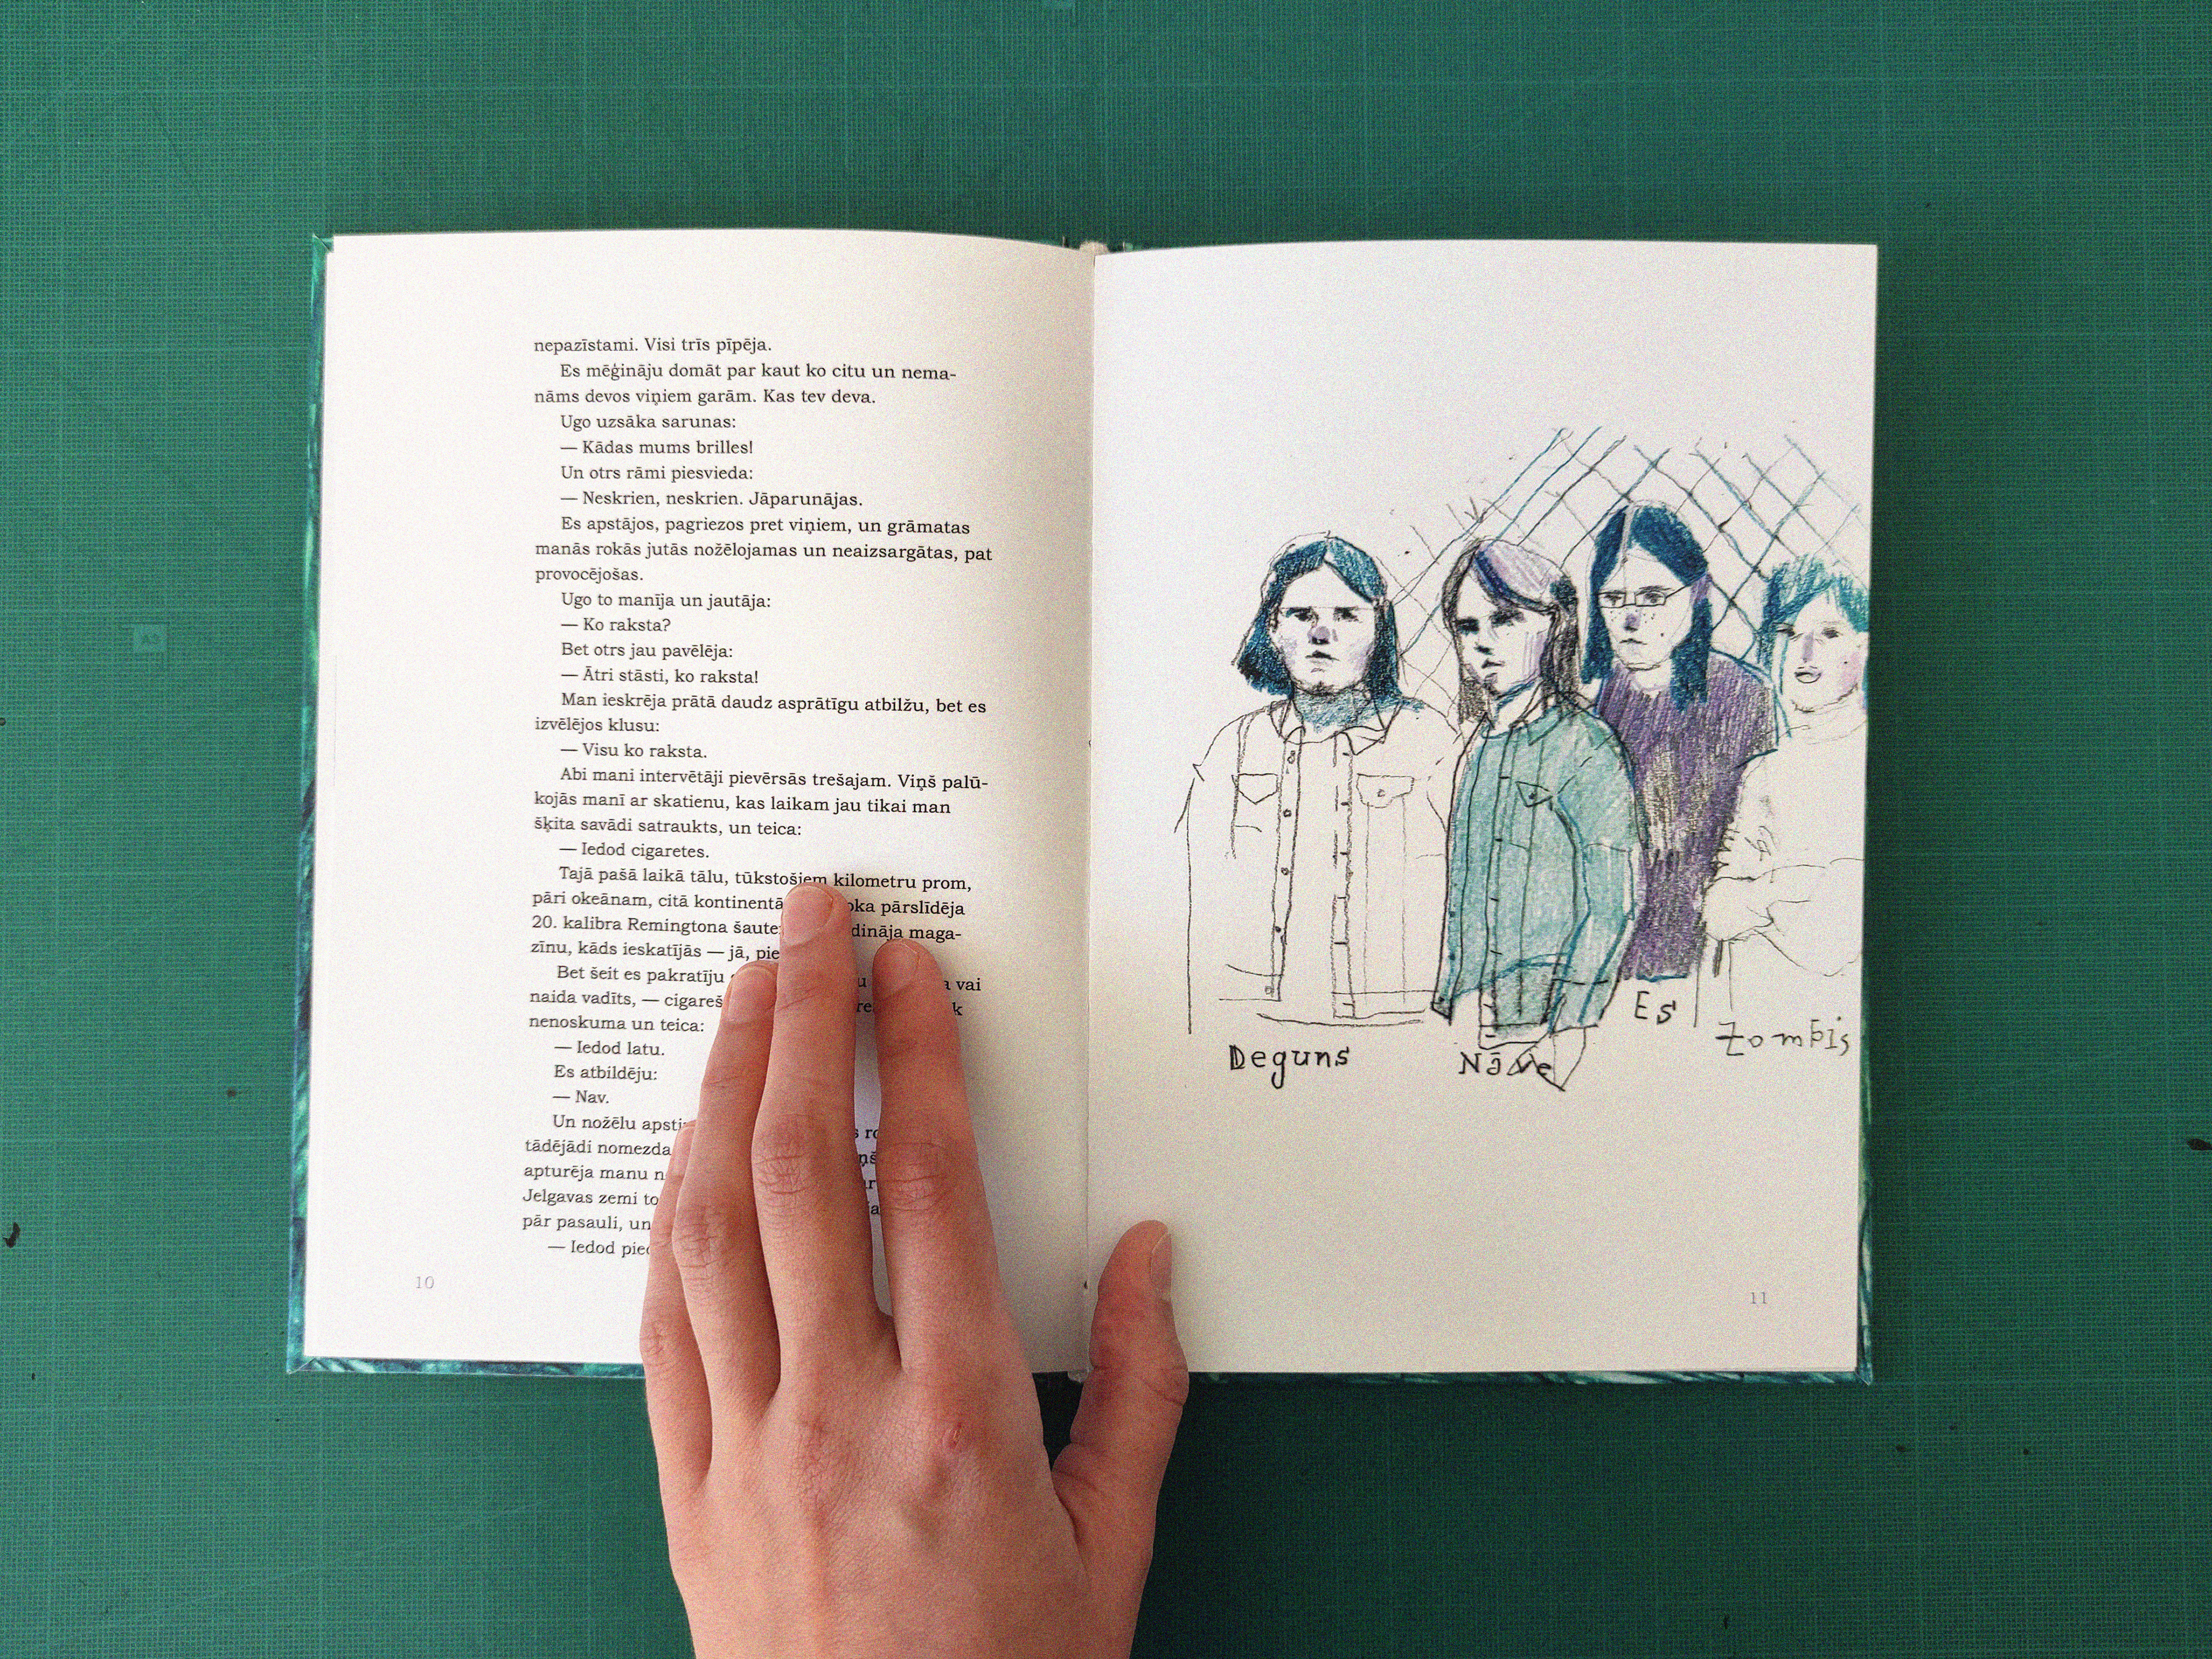 nepazīstami. Visi trīs pīpēja.
Es mēģināju domāt par kaut ko citu un nema-
nāms devos viņiem garām. Kas tev deva.
Ugo uzsāka sarunas:
— Kādas mums brilles!
Un otrs rāmi piesvieda:
— Neskrien, neskrien. Jāparunājas.
Es apstājos, pagriezos pret viņiem, un grāmatas
manās rokās jutās nožēlojamas un neaizsargātas, pat
provocējošas.
Ugo to manīja un jautāja:
— Ko raksta?
Bet otrs jau pavēlēja:
— Ātri stāsti, ko raksta!
Man ieskrēja prātā daudz asprātīgu atbilžu, bet es
izvēlējos klusu:
— Visu ko raksta.
Abi mani intervētāji pievērsās trešajam. Viņš palū-
kojās manī ar skatienu, kas laikam jau tikai man
šķita savādi satraukts, un teica:
— Iedod cigaretes.
Tajā pašā laikā tālu, tūkstošiem kilometru prom,
pāri okeānam, citā kontinentā pārslīdēja
20. kalibra Remingtona maga-
zīnu, kāds ieskatījās — jā,
Bet šeit es pakratīju vai
naida vadīts, —
nenoskuma un teica:
— Iedod latu.
Es atbildēju:
— Nav.
Un nožēlu
tādējādi nomezda
apturēja manu
Jelgavas zemi
pār pasauli, un
— Iedod
10
Deguns
Nāve
Es
Zombis
11